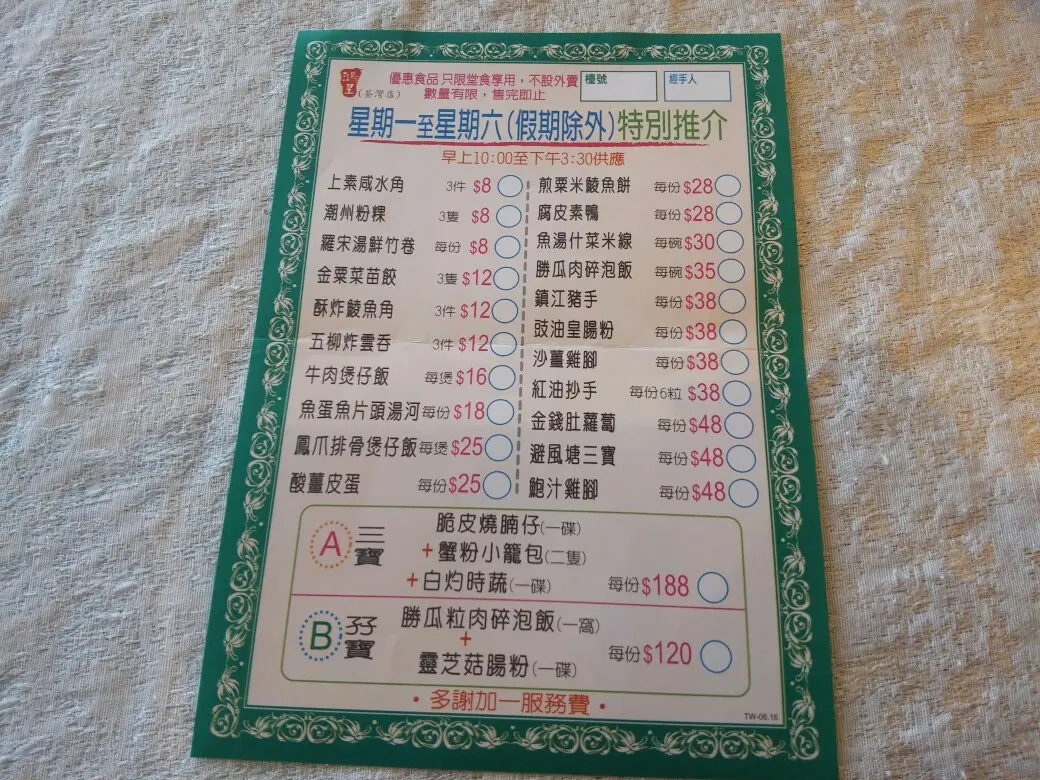 (荃灣店)
優惠食品只限堂食享用，不設外賣
數量有限，售完即止
檯號
經手人
星期一至星期六(假期除外)特別推介
早上10:00至下午3:30供應
上素咸水角 3件 $8
潮州粉粿 3隻 $8
羅宋湯鮮竹卷 每份 $8
金粟菜苗餃 3隻 $12
酥炸鯪魚角 3件 $12
五柳炸雲吞 3件 $12
牛肉煲仔飯 每煲 $16
魚蛋魚片頭湯河 每份 $18
鳳爪排骨煲仔飯 每煲 $25
酸薑皮蛋 每份 $25
煎粟米鯪魚餅 每份 $28
腐皮素鴨 每份 $28
魚湯什菜米線 每碗 $30
勝瓜肉碎泡飯 每碗 $35
鎮江豬手 每份 $38
豉油皇腸粉 每份 $38
沙薑雞腳 每份 $38
紅油抄手 每份6粒 $38
金錢肚蘿蔔 每份 $48
避風塘三寶 每份 $48
鮑汁雞腳 每份 $48
A 三寶
脆皮燒腩仔(一碟)
+蟹粉小籠包(二隻)
+白灼時蔬(一碟) 每份 $188
B 孖寶
勝瓜粒肉碎泡飯(一窩)
+
靈芝菇腸粉(一碟) 每份 $120
•多謝加一服務費•
TW-06.16